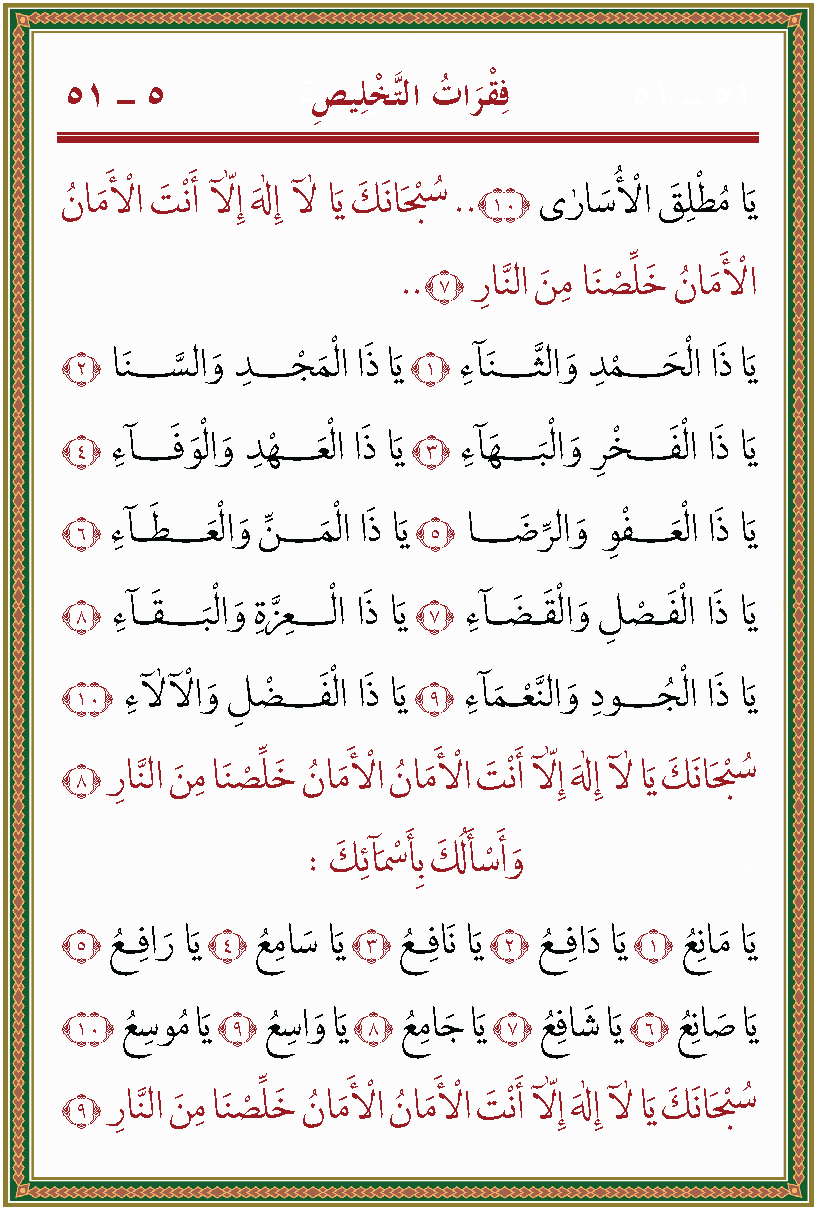 فِقْرَاتُ التَّخْلِيصِ ٥ ـ ٥١
يَا مُطْلِقَ الْأُسَارٰى ﴿١٠﴾.. سُبْحَانَكَ يَا لَآ اِلٰهَ اِلَّآ أَنْتَ الْأَمَانُ
الْأَمَانُ خَلِّصْنَا مِنَ النَّارِ ﴿٧﴾..
يَا ذَا الْحَـــمْدِ وَالثَّـــنَآءِ ﴿١﴾ يَا ذَا الْمَجْـــدِ وَالسَّـــنَا ﴿٢﴾
يَا ذَا الْفَـــخْرِ وَالْبَـــهَآءِ ﴿٣﴾ يَا ذَا الْعَـــهْدِ وَالْوَفَـــآءِ ﴿٤﴾
يَا ذَا الْعَـــفْوِ وَالرِّضَـــا ﴿٥﴾ يَا ذَا الْمَـــنِّ وَالْعَـــطَـآءِ ﴿٦﴾
يَا ذَا الْفَـصْـلِ وَالْقَـضَـآءِ ﴿٧﴾ يَا ذَا الْـــعِزَّةِ وَالْبَـــقَـآءِ ﴿٨﴾
يَا ذَا الْجُـــودِ وَالنَّعْـمَآءِ ﴿٩﴾ يَا ذَا الْفَـــضْلِ وَالْاٰلَآءِ ﴿١٠﴾
سُبْحَانَكَ يَا لَآ اِلٰهَ اِلَّآ أَنْتَ الْأَمَانُ الْأَمَانُ خَلِّصْنَا مِنَ النَّارِ ﴿٨﴾
وَأَسْأَلُكَ بِأَسْمَآئِكَ :
يَا مَانِعُ ﴿١﴾ يَا دَافِـعُ ﴿٢﴾ يَا نَافِـعُ ﴿٣﴾ يَا سَامِعُ ﴿٤﴾ يَا رَافِـعُ ﴿٥﴾
يَا صَانِعُ ﴿٦﴾ يَا شَافِعُ ﴿٧﴾ يَا جَامِعُ ﴿٨﴾ يَا وَاسِعُ ﴿٩﴾ يَا مُوسِعُ ﴿١٠﴾
سُبْحَانَكَ يَا لَآ اِلٰهَ اِلَّآ أَنْتَ الْأَمَانُ الْأَمَانُ خَلِّصْنَا مِنَ النَّارِ ﴿٩﴾